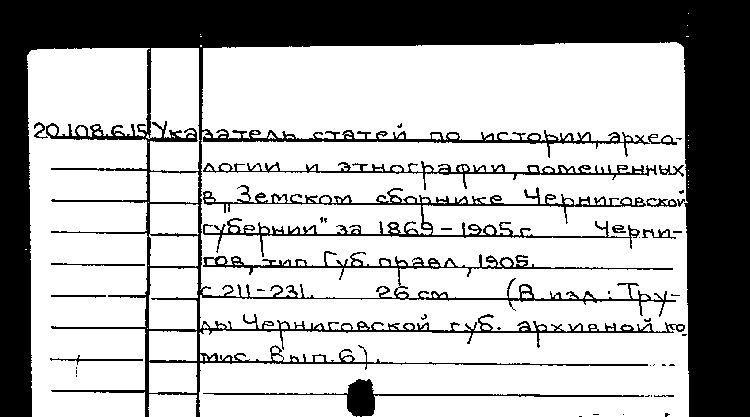 20.108.6.15 Указатель статей по истории, архео-
логии и этнографии, помещенных
в „Земском сборнике Черниговской
губернии" за 1869-1905 г. Черни-
гов, тип. Губ. правл., 1905.
с 211-231. 26 см (В изд.: Тру-
ды Черниговской губ. архивной ко
мис. Вып. 6).